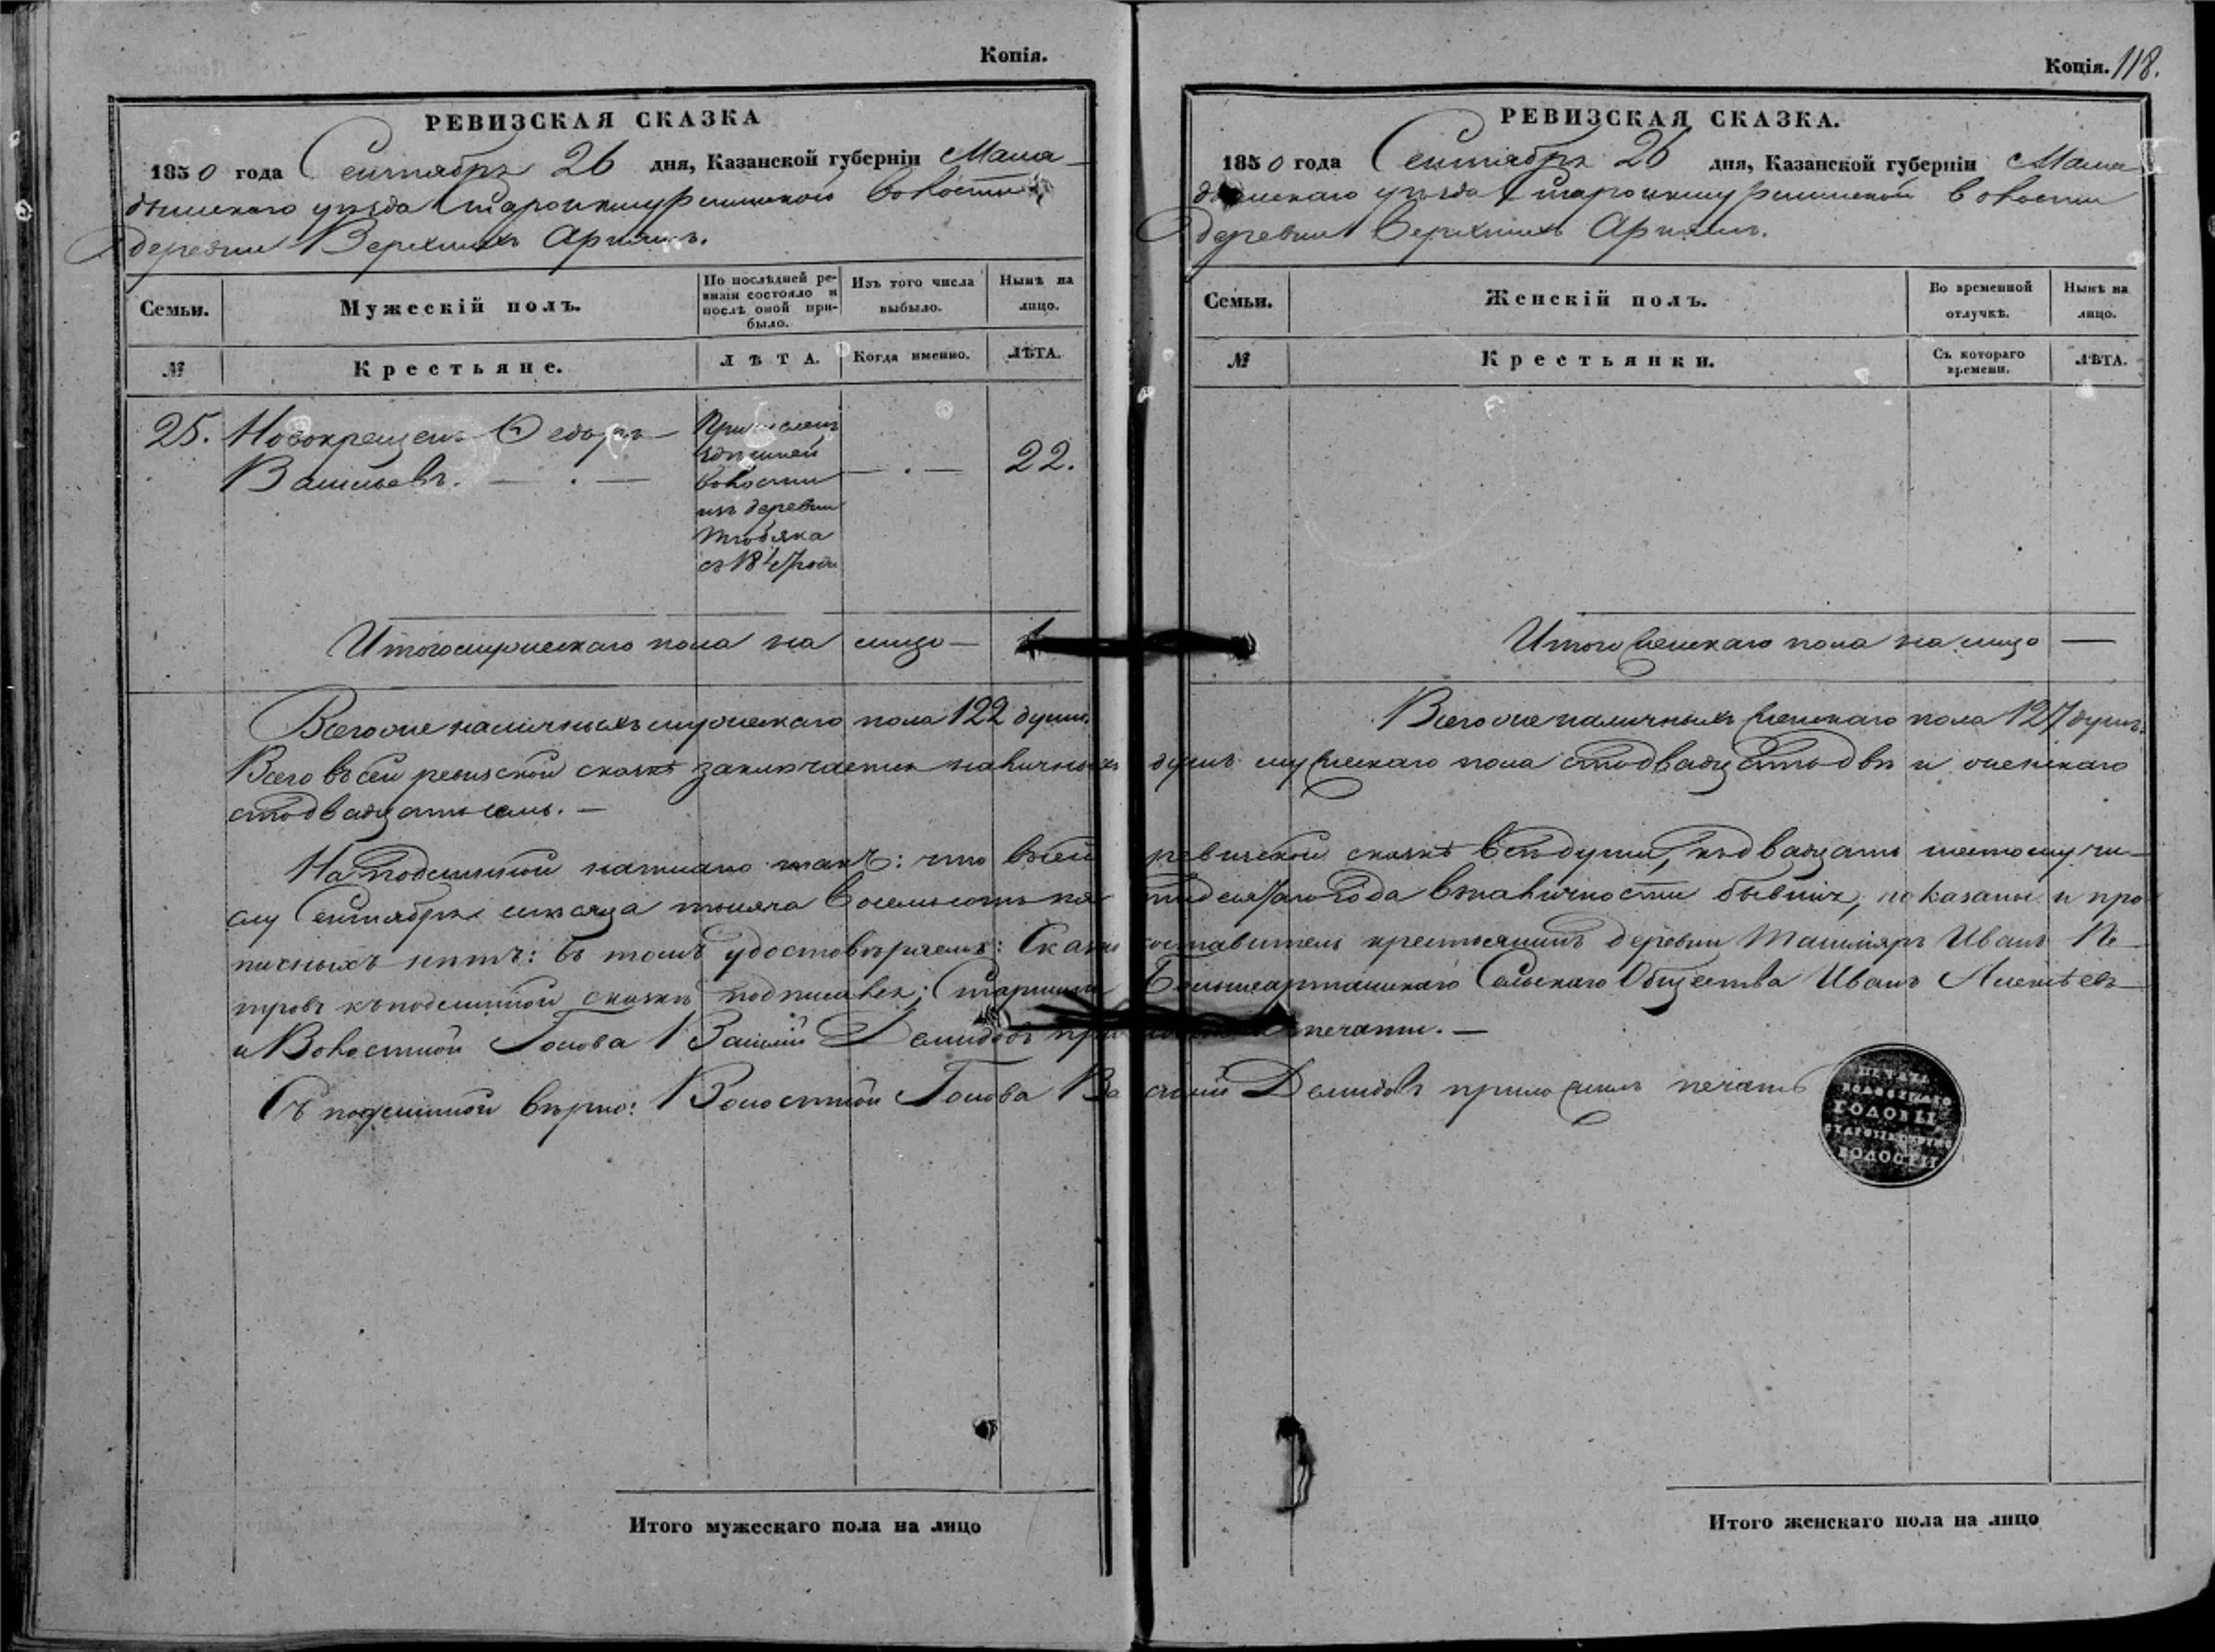 Копія.
РЕВИЗСКАЯ СКАЗКА
1850 года Сентября 26 дня, Казанской губерніи Мама-
дышскаго уѣзда волости
деревни Верхнихъ
Семьи.
Мужескій полъ.
По послѣдней ре-
визіи состояло и
послѣ оной при-
было.
Изъ того числа
выбыло.
Нынѣ на
лицо.
№
Крестьяне.
ЛѢТА.
Когда именно.
ЛѢТА.
25. Новокрещенъ Ѳедоръ
Васильевъ. — . —
Причисленъ
здѣшней
волости
изъ деревни
Тюбяка
съ 1847 года
— . —
22.
Итого мужескаго пола на лицо — 1
Всего же наличныхъ мужескаго пола 122 души.
Итого мужескаго пола на лицо
Копія. 118.
РЕВИЗСКАЯ СКАЗКА.
1850 года Сентября 26 дня, Казанской губерніи Мама
дышскаго уѣзда волости
деревни Верхнихъ
Семьи.
Женскій полъ.
Во временной
отлучкѣ.
Нынѣ на
лицо.
№
Крестьянки.
Съ котораго
времени.
ЛѢТА.
Итого женскаго пола на лицо —
Всего же наличныхъ женскаго пола 127 душъ.
Всего въ сей ревизской сказкѣ заключается наличныхъ душъ мужескаго пола сто двадцать двѣ и женскаго
сто двадцать семь. —
На подлинной написано такъ: что въ сей ревизской сказкѣ всѣ души, къ двадцать шестому чи-
слу Сентября мѣсяца тысяча восемьсотъ пятидесятаго года въ наличности бывшія, показаны и про
писныхъ нѣтъ: въ томъ удостовѣряемъ: Сказкосоставитель крестьянинъ деревни Иванъ Пе-
тровъ къ подлинной сказкѣ подписался; Старшина Сельскаго Общества Иванъ Алексѣевъ
и Волостной Голова Василій Демидовъ печати. —
Съ подлинной вѣрно: Волостной Голова Василій Демидовъ приложилъ печать
ПЕЧАТЬ
ВОЛОСТНАГО
ГОЛОВЫ
ВОЛОСТИ
Итого женскаго пола на лицо